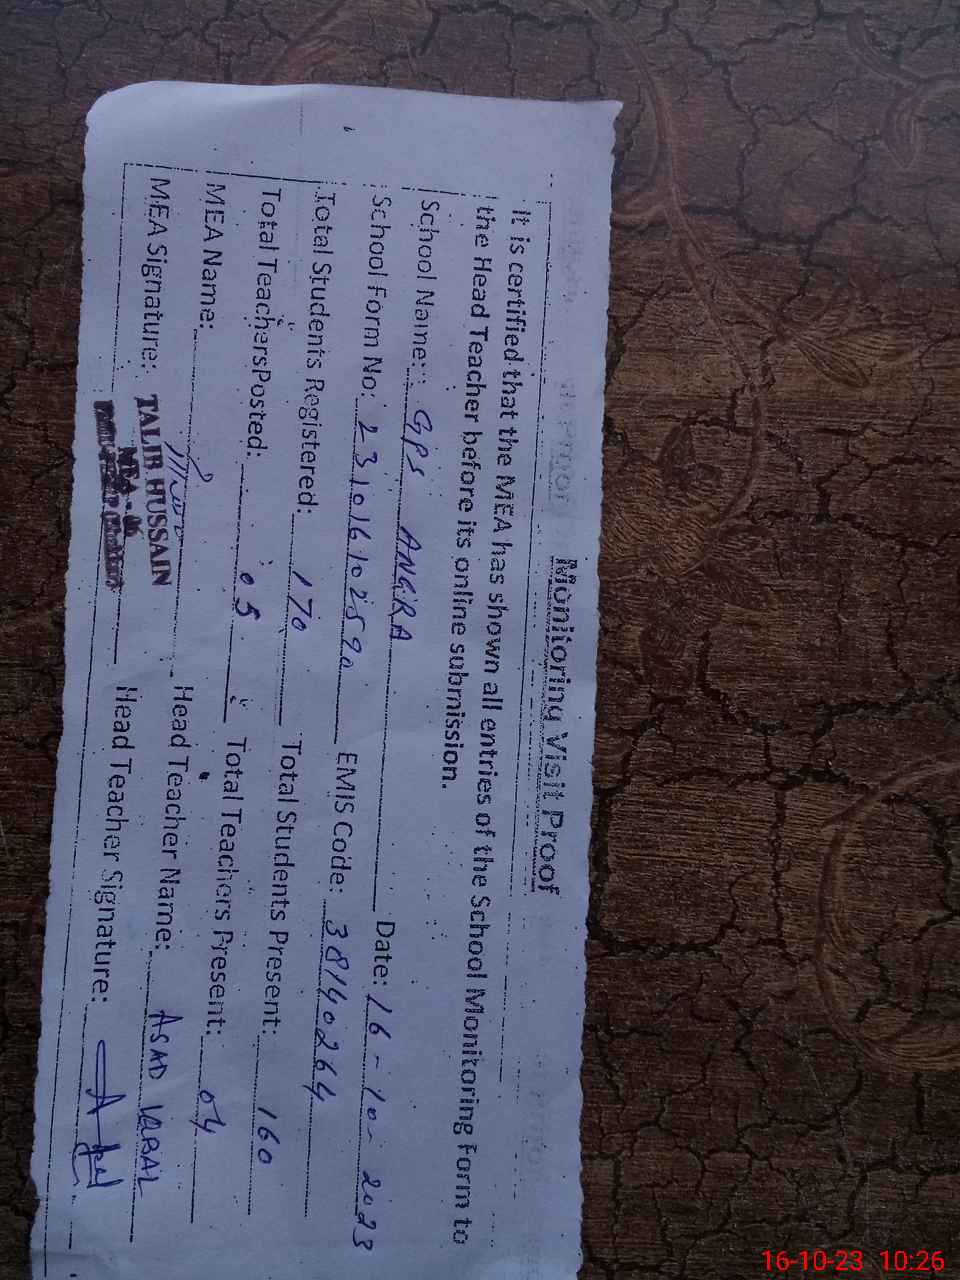 Monitoring Visit Proof
It is certified that the MEA has shown all entries of the School Monitoring Form to
the Head Teacher before its online submission.
School Name: GPS ANGRA Date: 16-10-2023
School Form No: 231016102590 EMIS Code: 38140264
Total Students Registered: 170 Total Students Present: 160
Total Teachers Posted: 05 Total Teachers Present: 04
MEA Name: Head Teacher Name: ASAD IQBAL
MEA Signature: TALIB HUSSAIN Head Teacher Signature:
MEA
16-10-23 10:26